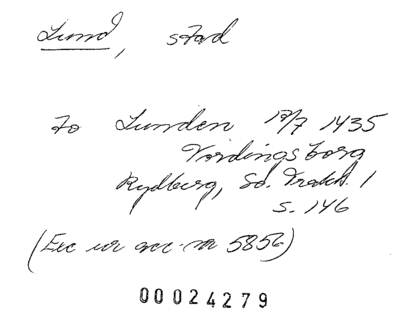 Lund, stad
to Lunden 17/7 1435
Vordingsborg
Rydberg, Sv. Trakt. 1
s. 146
(Exc ur acc. nr 5856)
00024279